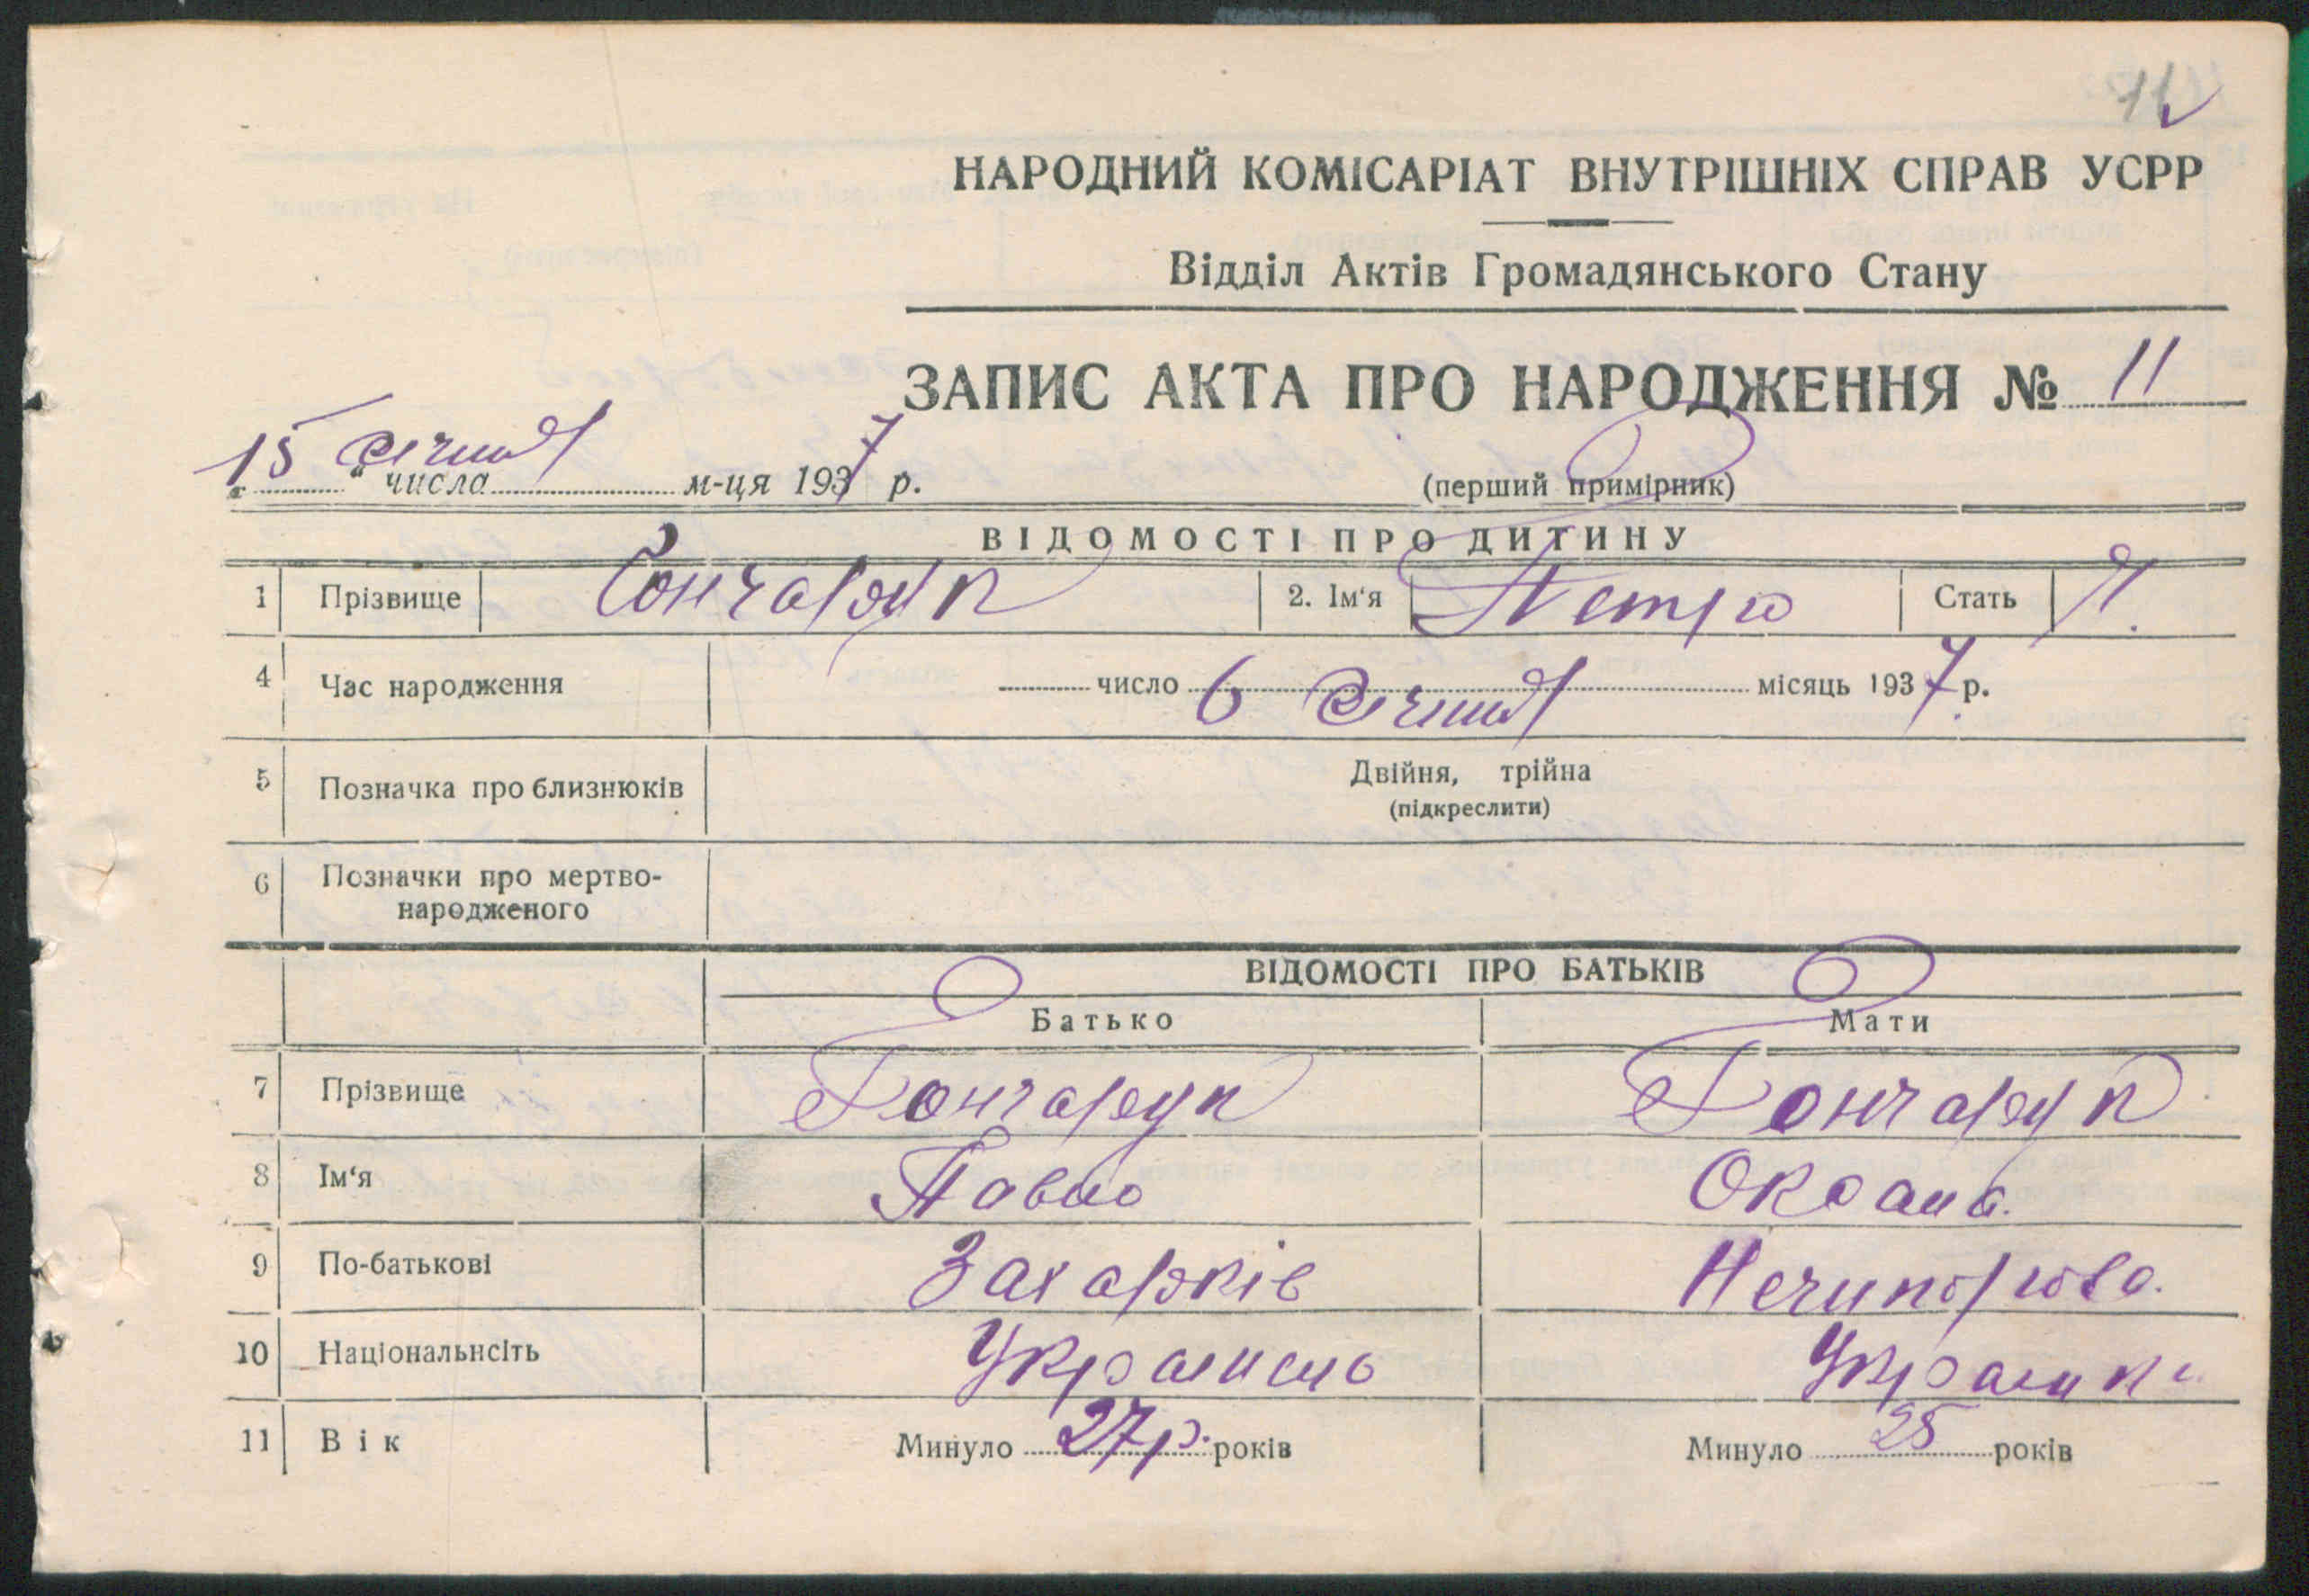 11
НАРОДНИЙ КОМІСАРІАТ ВНУТРІШНІХ СПРАВ УСРР
Відділ Актів Громадянського Стану
ЗАПИС АКТА ПРО НАРОДЖЕННЯ № 11
"15" числа січня м-ця 1937 р. (перший примірник)
ВІДОМОСТІ ПРО ДИТИНУ
1 Прізвище Гончарук 2. Ім'я Петро Стать Ч.
4 Час народження число 6 січня місяць 1937 р.
5 Позначка про близнюків Двійня, трійна
(підкреслити)
6 Позначки про мертво-
народженого
ВІДОМОСТІ ПРО БАТЬКІВ
Батько Мати
7 Прізвище Гончарук Гончарук
8 Ім'я Павло Оксана
9 По-батькові Захарків Нечипорова
10 Національнсіть Українець Українка
11 Вік Минуло 27р. років Минуло 25 років